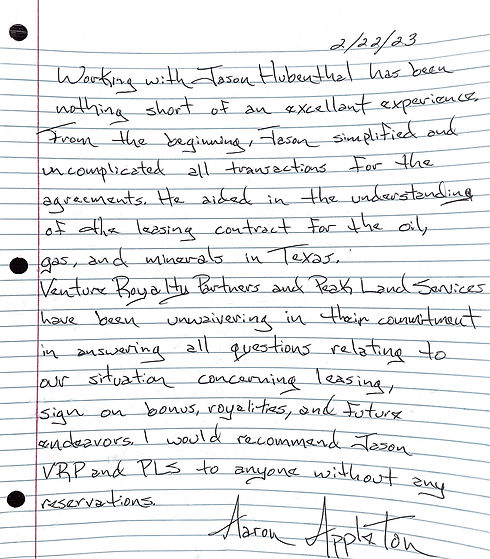 2/22/23
Working with Jason Hubenthal has been
nothing short of an excellant experience.
From the beginning, Jason simplified and
uncomplicated all transactions for the
agreements. He aided in the understanding
of the leasing contract for the oil,
gas, and minerals in Texas.
Venture Royalty Partners and Peak Land Services
have been unwaivering in their committment
in answering all questions relating to
our situation concerning leasing,
sign on bonus, royalities, and future
endeavors. I would recommend Jason
VRP and PLS to anyone without any
reservations.
Aaron Appleton